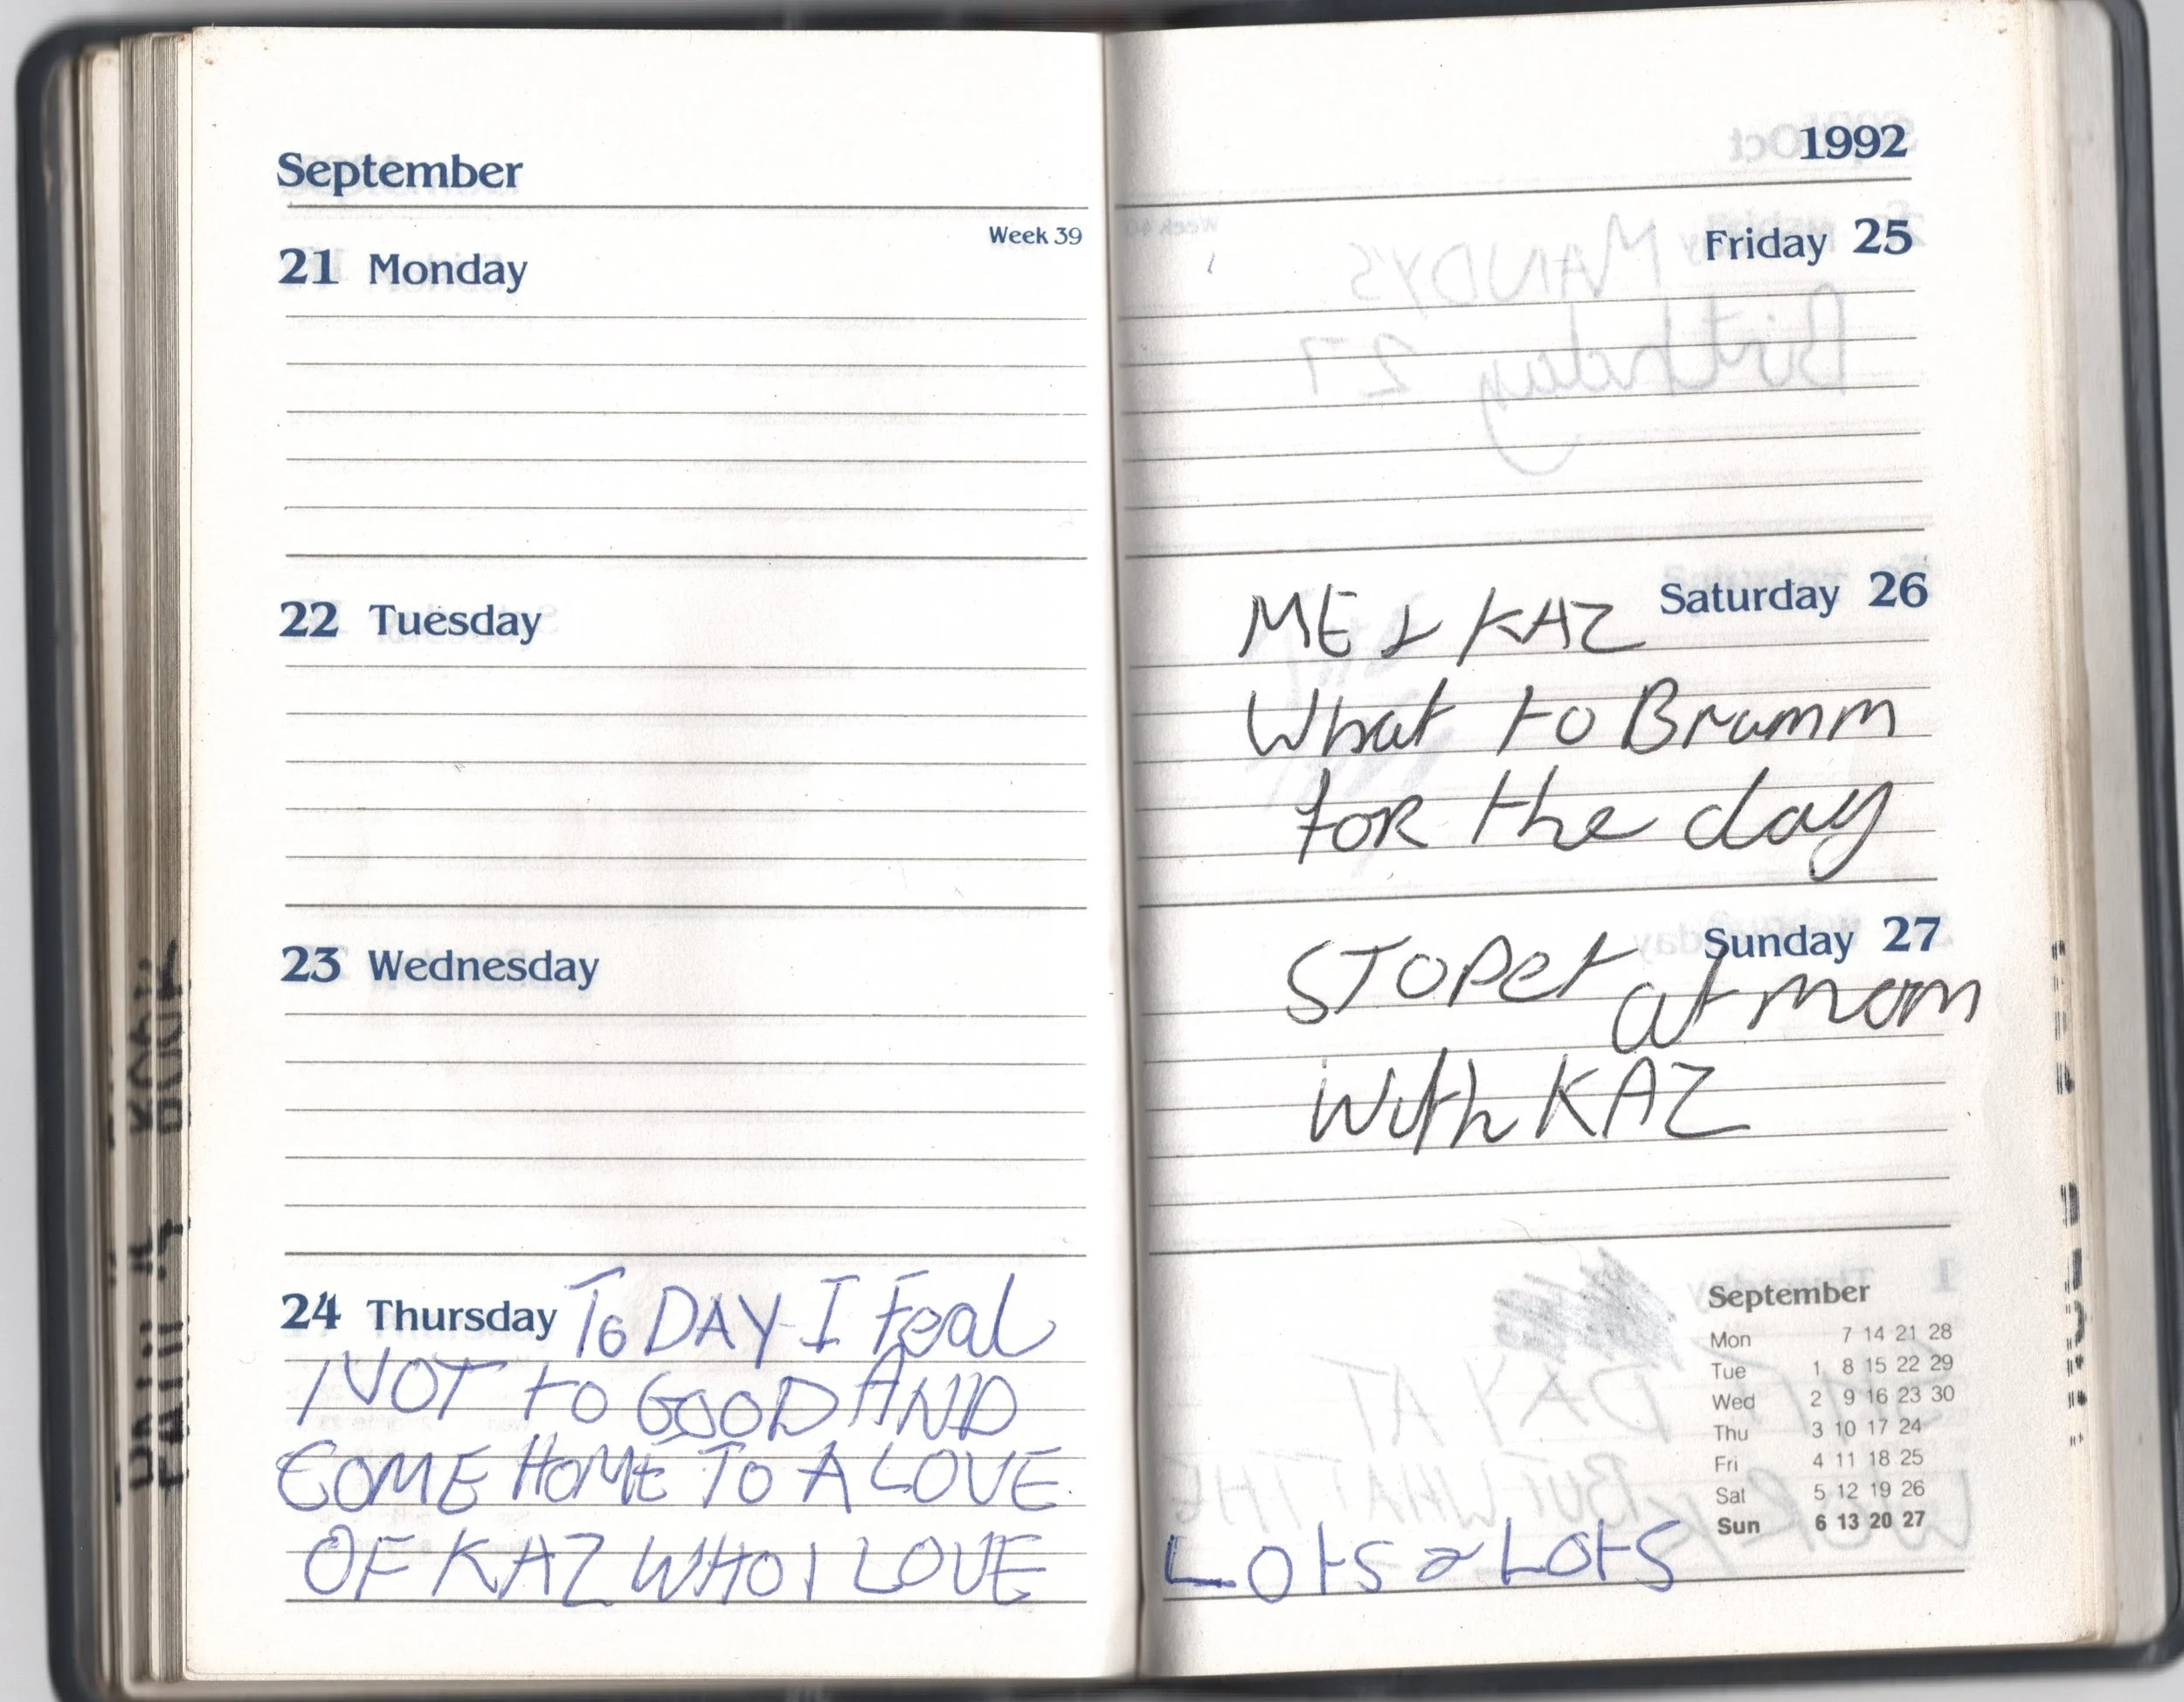 September
Week 39
21 Monday
22 Tuesday
23 Wednesday
24 Thursday ToDAY I Feal
NOT to GOOD AND
COME HOME TO A LOVE
OF KAZ WHO I LOVE
1992
Friday 25
Saturday 26
ME & KAZ
What to Brumm
FOR the day
Sunday 27
STOPet at mom
With KAZ
September
Mon 7 14 21 28
Tue 1 8 15 22 29
Wed 2 9 16 23 30
Thu 3 10 17 24
Fri 4 11 18 25
Sat 5 12 19 26
Sun 6 13 20 27
LOtS & LOtS